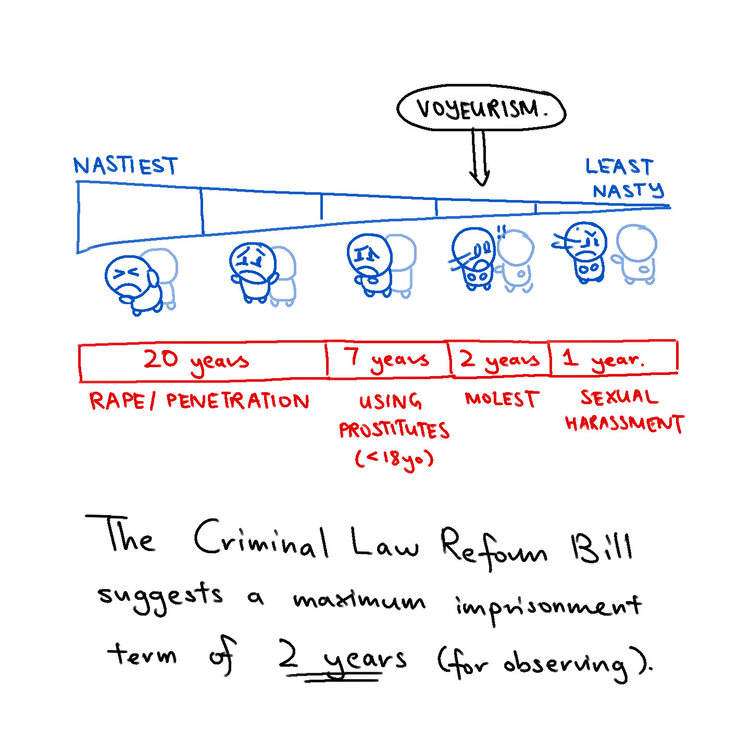 VOYEURISM.
NASTIEST
LEAST
NASTY
!!
20 years
7 years
2 years
1 year.
RAPE/PENETRATION
USING
PROSTITUTES
(<18yo)
MOLEST
SEXUAL
HARASSMENT
The Criminal Law Reform Bill
suggests a maximum imprisonment
term of 2 years (for observing).